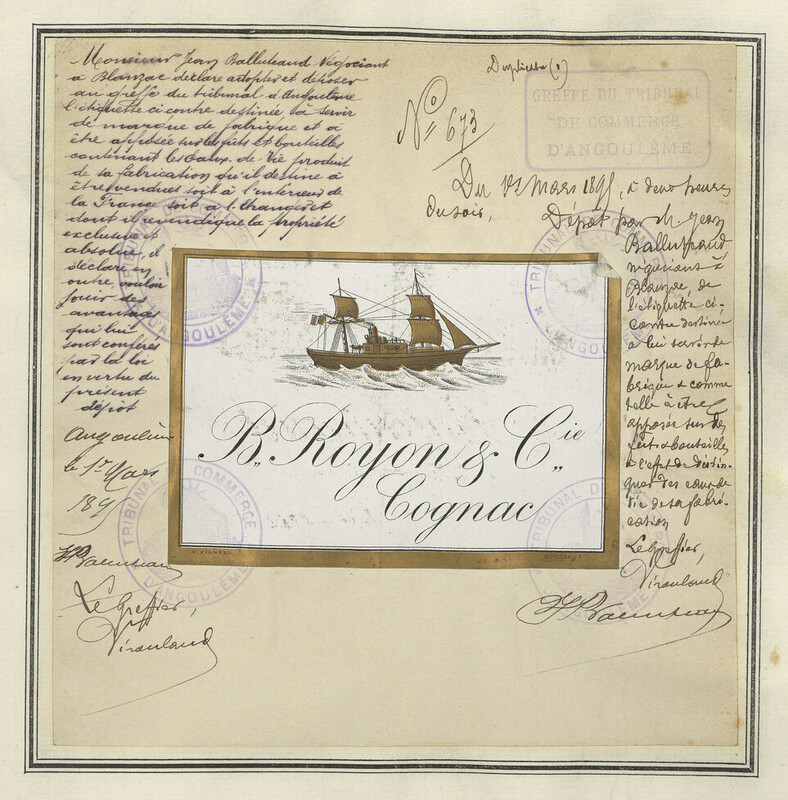 Monsieur Jean Balluteaud Négociant
à Blanzac déclare adopter et déposer
au greffe du tribunal d'Angoulême
l'étiquette ci contre destinée à servir
de marque de fabrique et à
être apposée sur les fûts et bouteilles
contenant les Eaux-de-Vie produit
de sa fabrication qu'il destine à
être vendues soit à l'intérieur de
la France soit à l'Etranger et
dont il revendique la propriété
exclusive et
absolue, il
déclare en
outre vouloir
jouir des
avantages
qui lui
sont conférés
par la loi
en vertu du
présent
dépôt
Angoulême
le 1er Mars
1895
Le Greffier,
Viroulaud
Duplicata (1)
No 673
GREFFE DU TRIBUNAL
DE COMMERCE
D'ANGOULÊME
Du 1er Mars 1895, à deux heures
du soir,
Dépôt par M. Jean
Balluteaud
négociant à
Blanzac, de
l'étiquette ci-
contre destinée
à lui servir de
marque de fa-
brique & comme
telle à être
apposée sur des
fûts & bouteilles
à l'effet de distin-
guer des eaux de
vie de sa fabri-
cation
Le Greffier,
Viroulaud
B. Royon & Cie
Cognac
A. VIGNEAU
BORDEAUX
TRIBUNAL DE COMMERCE
D'ANGOULÊME